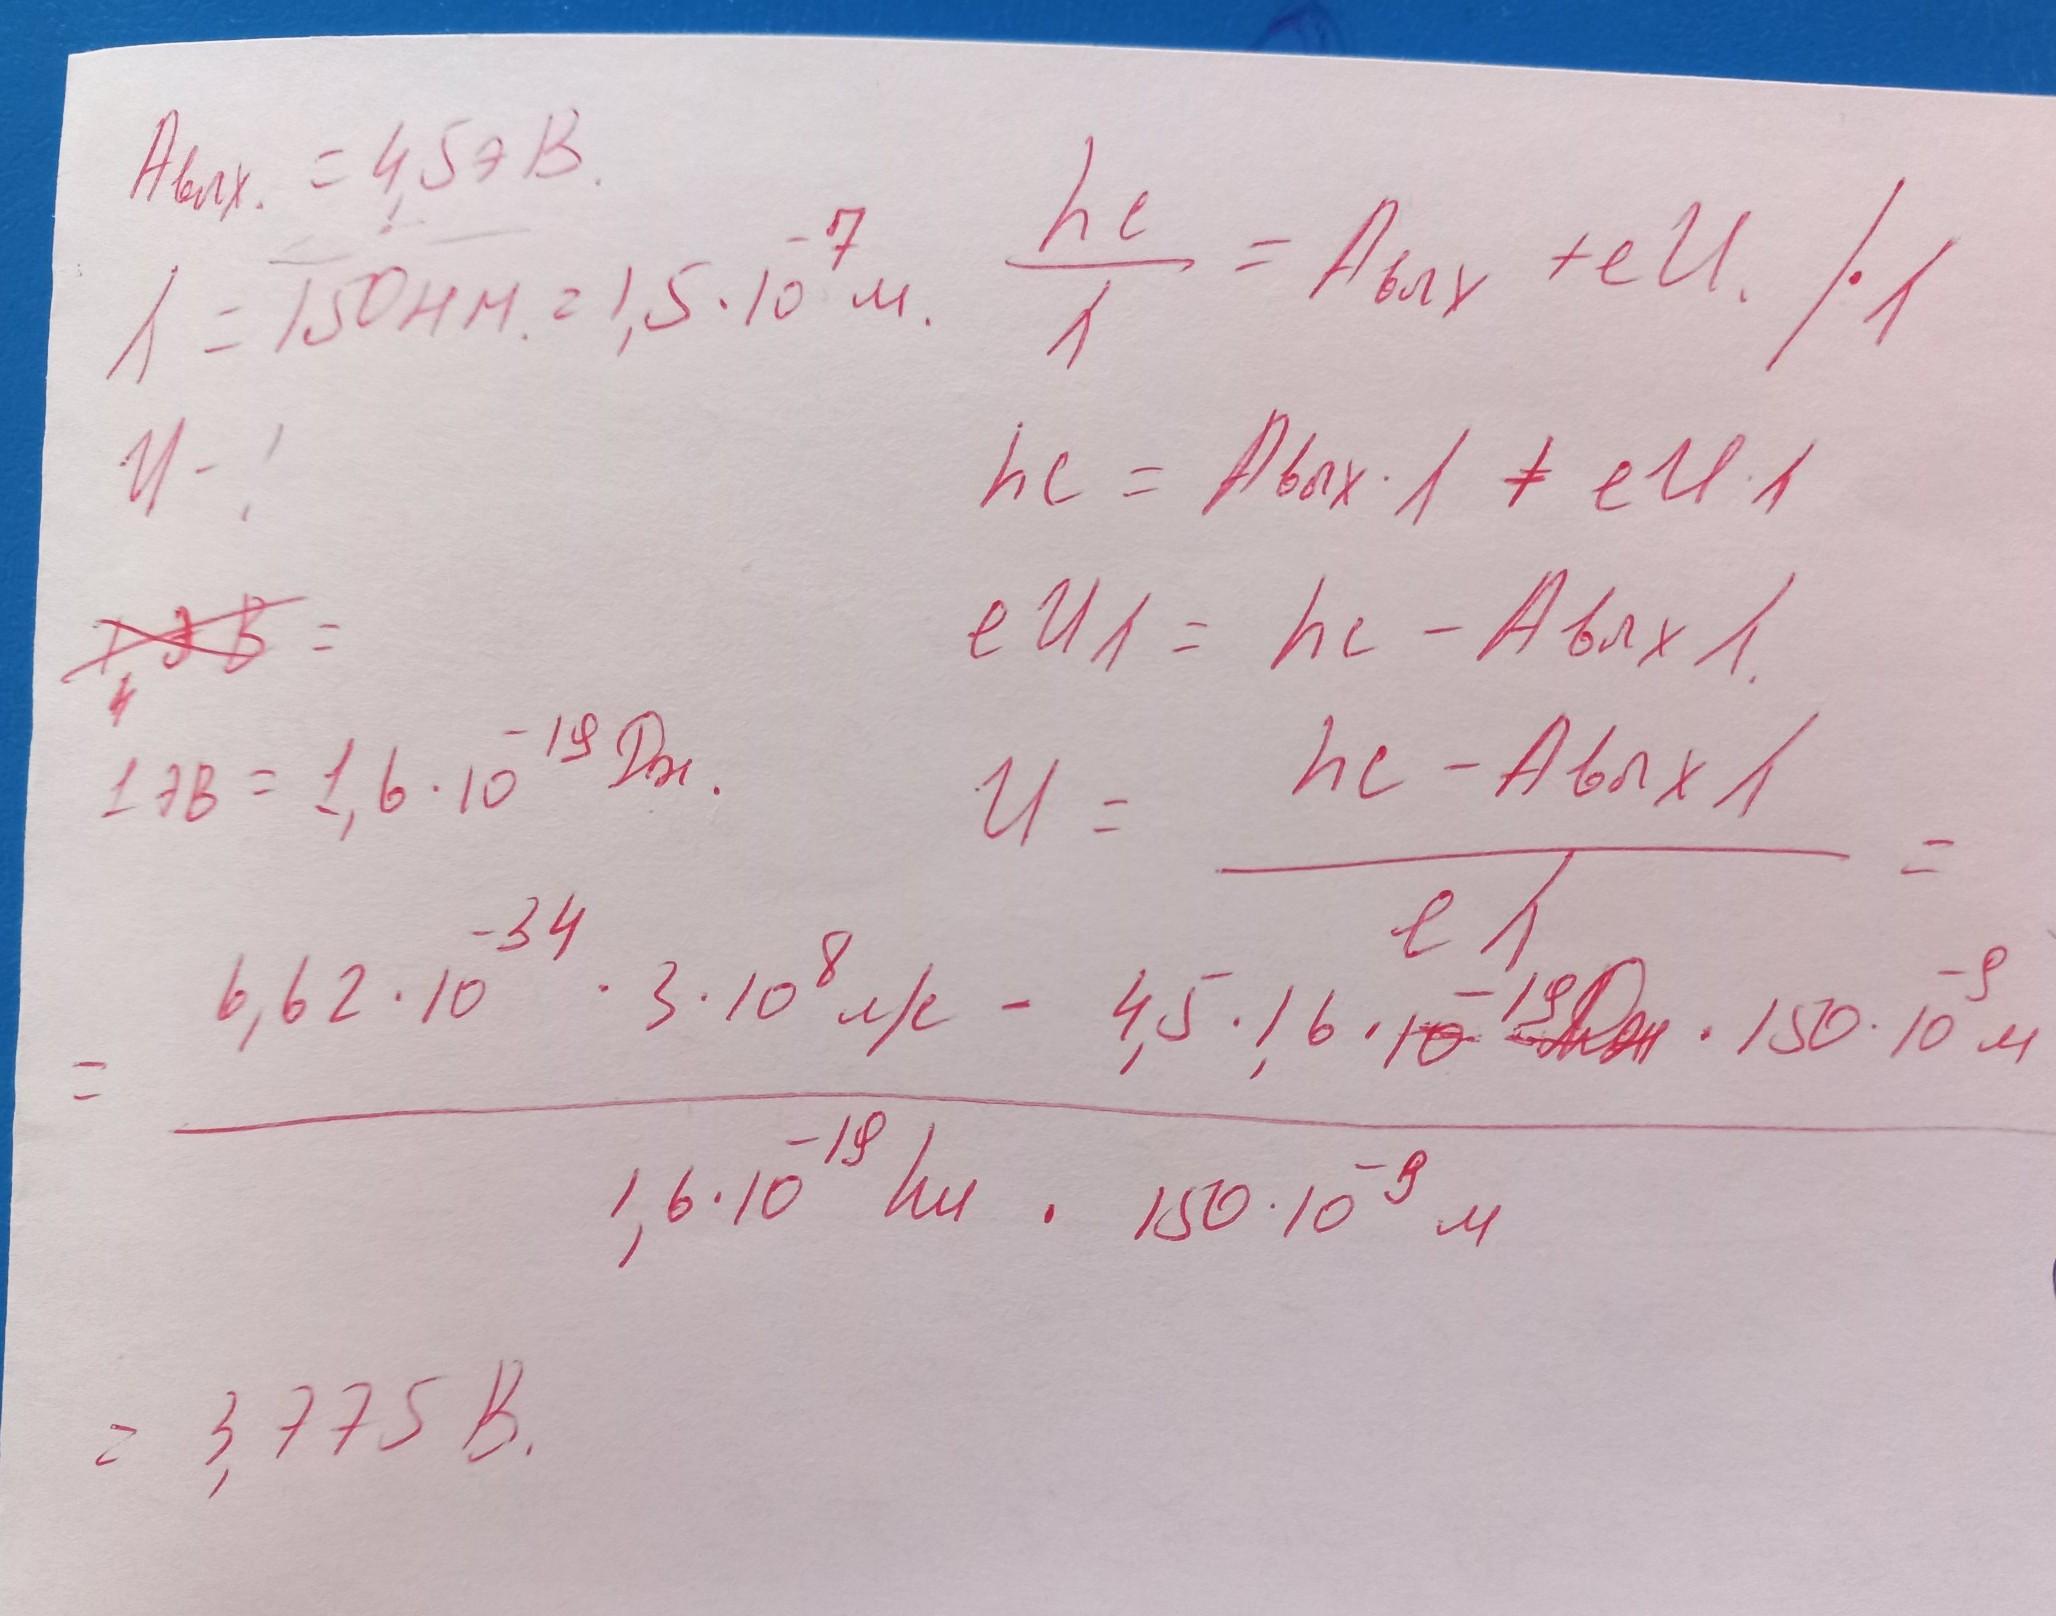 Aвых. = 4,5эВ.
λ = 150нм. = 1,5·10⁻⁷м.
U - ?
1эВ = 1,6·10⁻¹⁹Дж.
hc/λ = Aвых + eU. /·λ
hc = Aвых·λ + eU·λ
eUλ = hc - Aвыхλ.
U = (hc - Aвыхλ)/(eλ) =
= (6,62·10⁻³⁴ · 3·10⁸м/с - 4,5·1,6·10⁻¹⁹ · 150·10⁻⁹м)/(1,6·10⁻¹⁹Кл · 150·10⁻⁹м)
= 3,775 В.